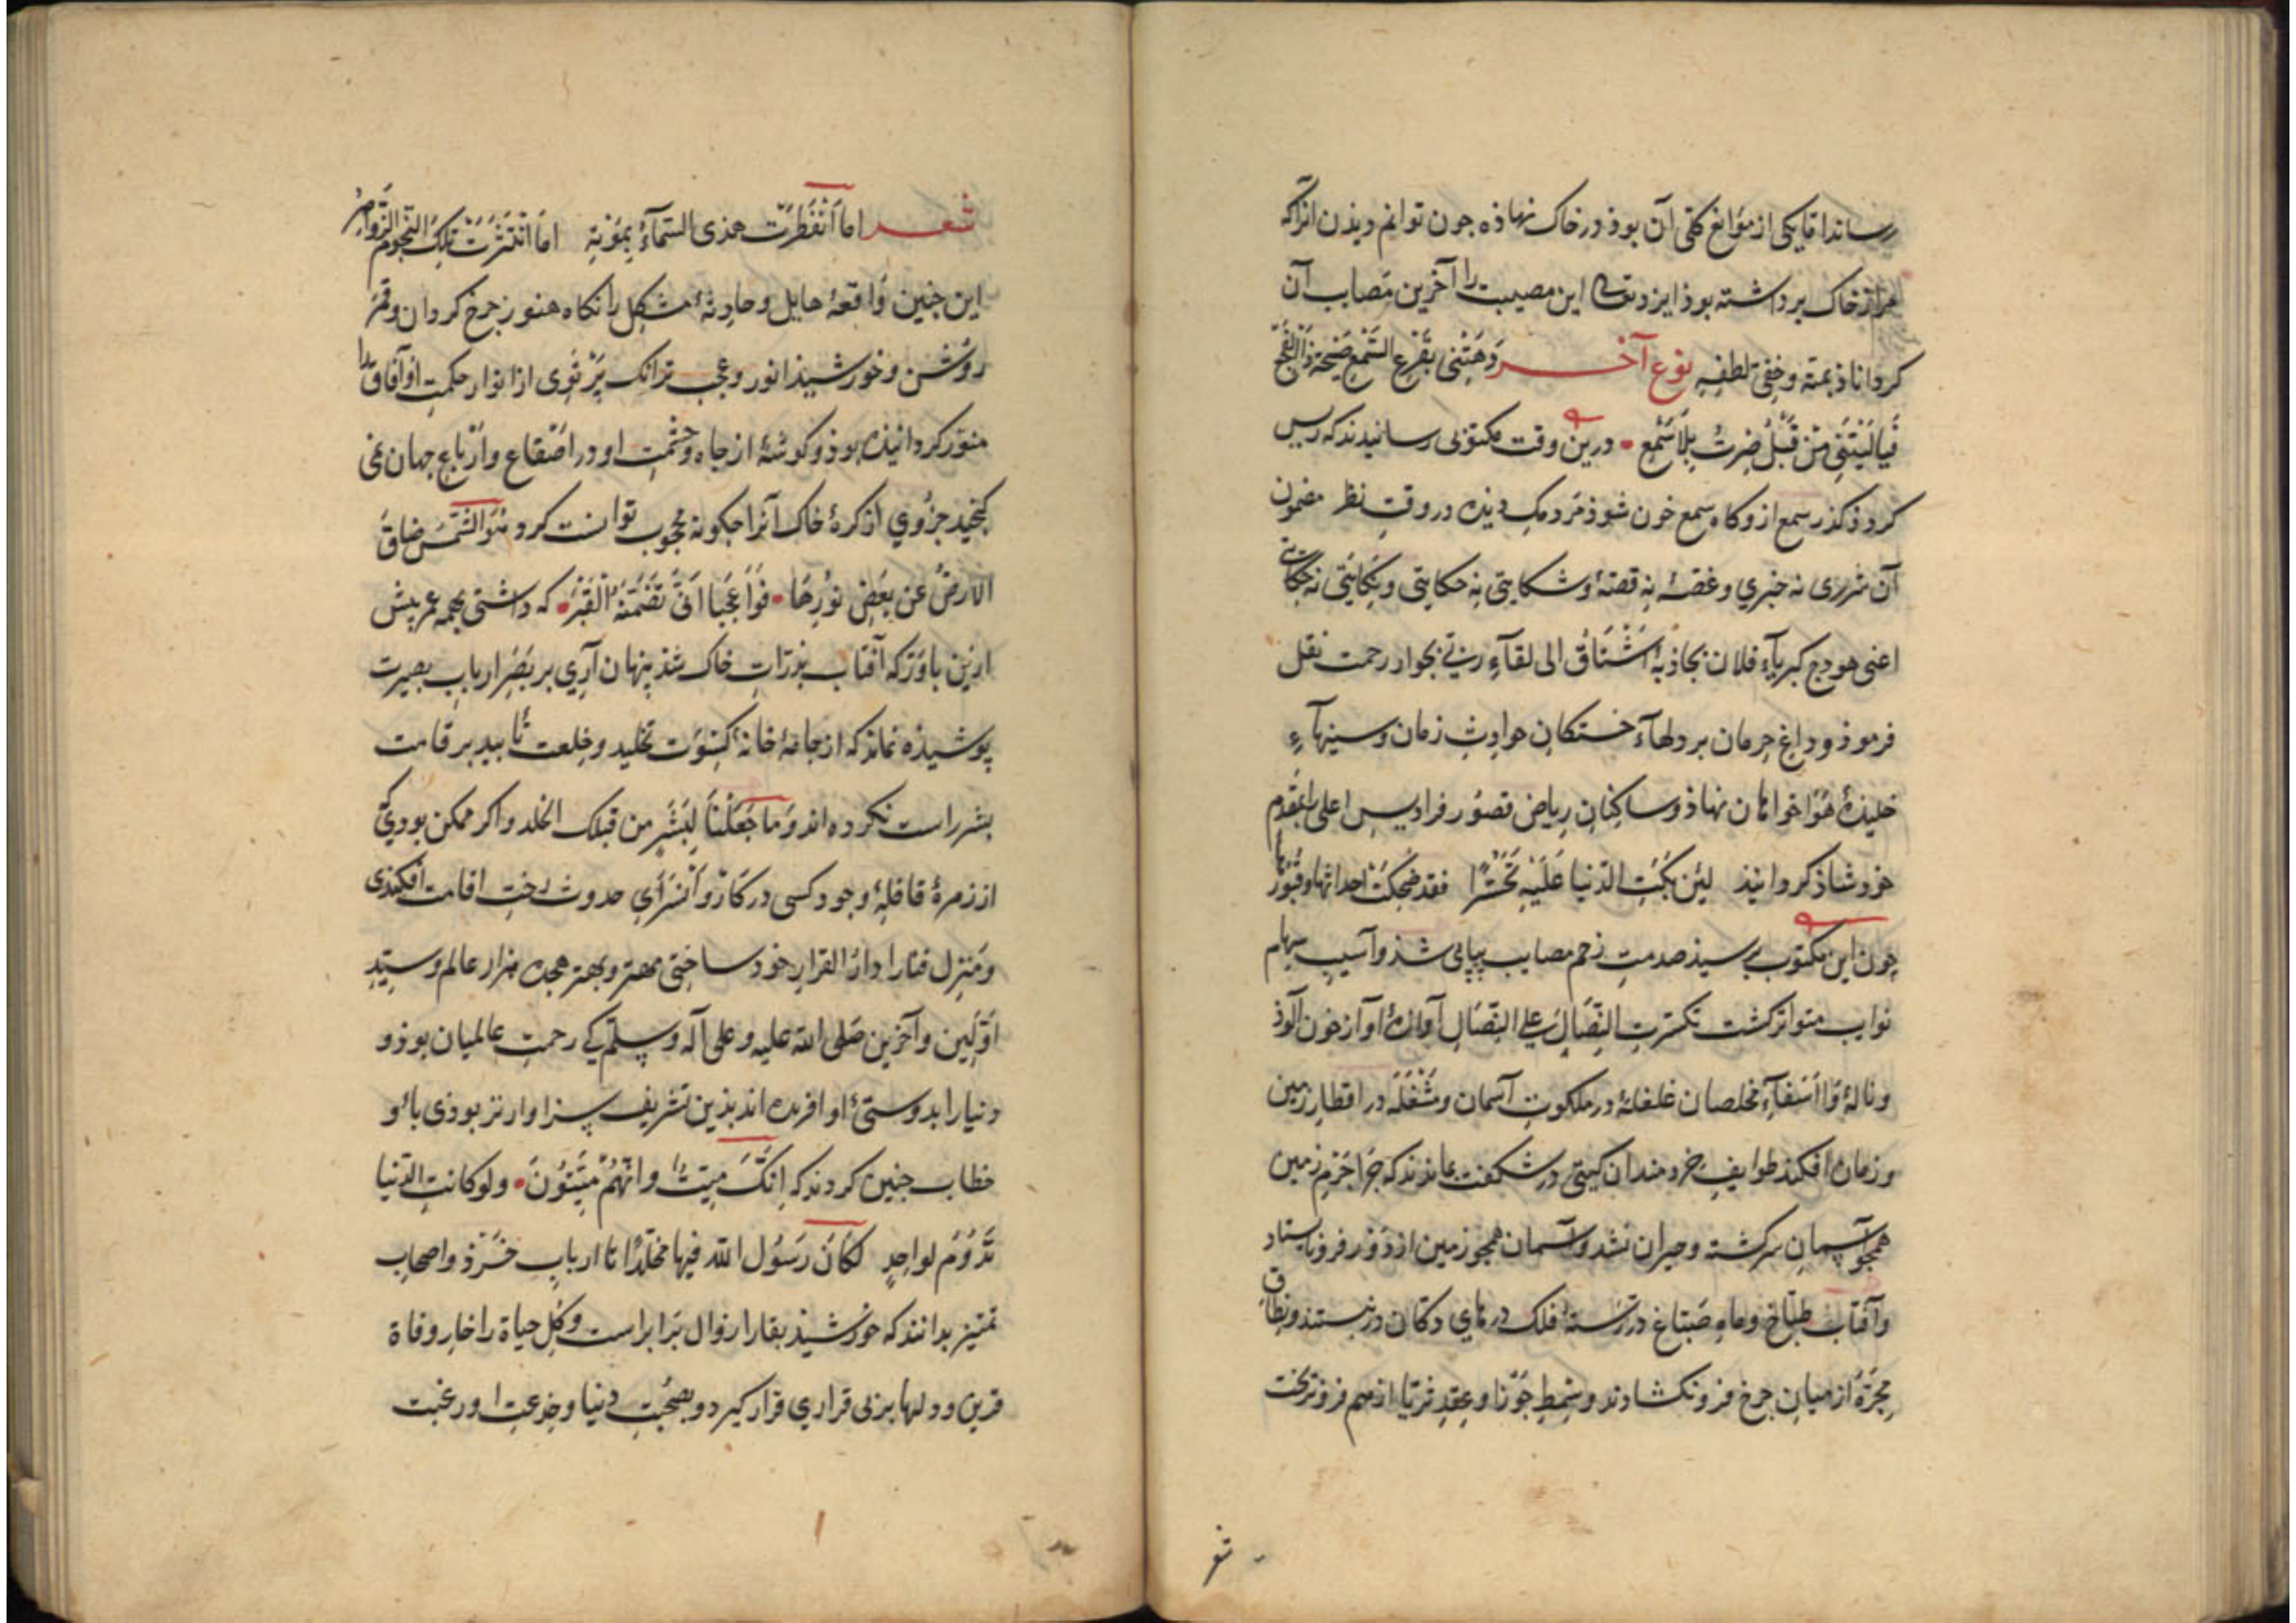 رساند اقا یکی از موانع کلی آن بوذ در خاک نهاذه جون توانم دیذن انراکه
مرا از خاک برداشته بوذ ایزد تعالی این مصیبت را آخرین مصایب آن
کرداناذ بمنه وخفی لطفه نوع آخر دهتنی بقرع السمع صیحة
فیا لیتنی من قبل صرت بلا سمع • درین وقت مکتوبی رسانیدند که رسس
کرد ذکذر سمع از وکاه سمع خون شوذ مردمک دیذه در وقت نظر مضمون
آن شرری نه خبری وغصهٔ نه قصهٔ وشکایتی نه حکایتی ونکایتی نه حکایتی
اعنی هودج کبریاء فلان بجاذبهٔ اشتاق الی لقاء ربی بجوار رحمت نقل
فرموذ وداغ حرمان بردلهاء خستکان حوادث زمان وسینهاء
خلیذهٔ هواخواهان نهاذ وساکنان ریاض قصور فرادیس اعلی را بمقدم
خوذ شاذ کردانیذ لئن بکت الدنیا علیه تحسرا فقد ضحکت احداثها وقبورها
چون این مکتوب برسیذ صدمت زخم مصایب پیاپی شذ وآسیب سهام
نوایب متواتر کشت تکسرت النصال علی النصال آوازهٔ اواز خون آلوذ
ونالهٔ وا اسفاء مخلصان غلغلهٔ در ملکوت آسمان ومشغله در اقطار زمین
وزمان افکند طوایف خردمندان کیتی در شکفت بماندند که جرا جرم زمین
همجو آسمان سرکشته وحیران نشد وآسمان همجو زمین از دور فرو نایستاد
وآفتاب طباخ وماه صباغ در رستهٔ فلک درهای دکان در نبستند ونطاق
مجره از میان جرخ فرو نکشادند وسمط جوزا وعقد ثریا از هم فرو نریخت
شعر
شعر اما انفطرت هذی السماء بموته اما انتثرت تلک النجوم الزواهر
این جنین واقعهٔ هایل وحادثهٔ مشکل وانکاه هنوز جرخ کردان وقمر
روشن وخورشیذ انور وعجب ترانک پرتوی از انوار حکمت او آفاق را
منور کردانیذه بوذ وکوشهٔ از جاه وحشمت او در اصقاع وارباع جهان نمی
کنجید جزوی از کرهٔ خاک آنرا جکونه محجوب توانست کرد هو الشمس ضاق
الارض عن بعض نورها • فواعجبا انی تضمنه القبر • که داشتی بهمه عمر بیش
ازین باور که آفتاب بذرات خاک شذ پنهان آری بر بصر ارباب بصیرت
پوشیذه نماند که از جامهٔ خانه کسوت تخلید وخلعت تأبید بر قامت
بشر راست نکرده اند وما جعلنا لبشر من قبلک الخلد واکر ممکن بودی کی
از زمرهٔ قافلهٔ وجود کسی در کاروانسرای حدوث رخت اقامت افکندی
ومنزل فنارا دار القرار خود ساختی مهتر وبهتر هجده هزار عالم وسید
اولین وآخرین صلی الله علیه وعلی آله وسلم کی رحمت عالمیان بوذ و
دنیارا بدوستیٔ او افریده اند بذین تشریف سزاوارتر بوذی با او
خطاب جنین کردند که انک میت وانهم میتون • ولو کانت الدنیا
تدوم لواحد لکان رسول الله فیها مخلدا تا ارباب خرذ واصحاب
تمییز بدانند که خورشیذ بقارا زوال برابراست وکل حیاة را خار وفاة
قرین ودلها بر بی قراری قرار کیرد وبصحبت دنیا وخدعت او رغبت